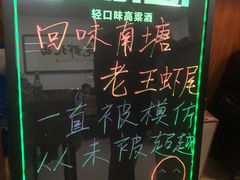 轻口味高粱酒
回味南塘
老王虾屋
一直被模仿
从未被超越